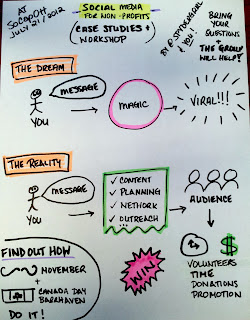 AT
SOCAPOTT
JULY 21, 2012
SOCIAL MEDIA
FOR NON-PROFITS
CASE STUDIES +
WORKSHOP
BY: @SPYDERGRRL
& YOU!
BRING
YOUR
QUESTIONS
+
THE GROUP
WILL HELP!
THE DREAM
MESSAGE
YOU
MAGIC
VIRAL!!!
THE REALITY
MESSAGE
YOU
✓ CONTENT
✓ PLANNING
✓ NETWORK
✓ OUTREACH
AUDIENCE
WIN
$
VOLUNTEERS
TIME
DONATIONS
PROMOTION
FIND OUT HOW
NOVEMBER
+
CANADA DAY
BARRHAVEN
DO IT!